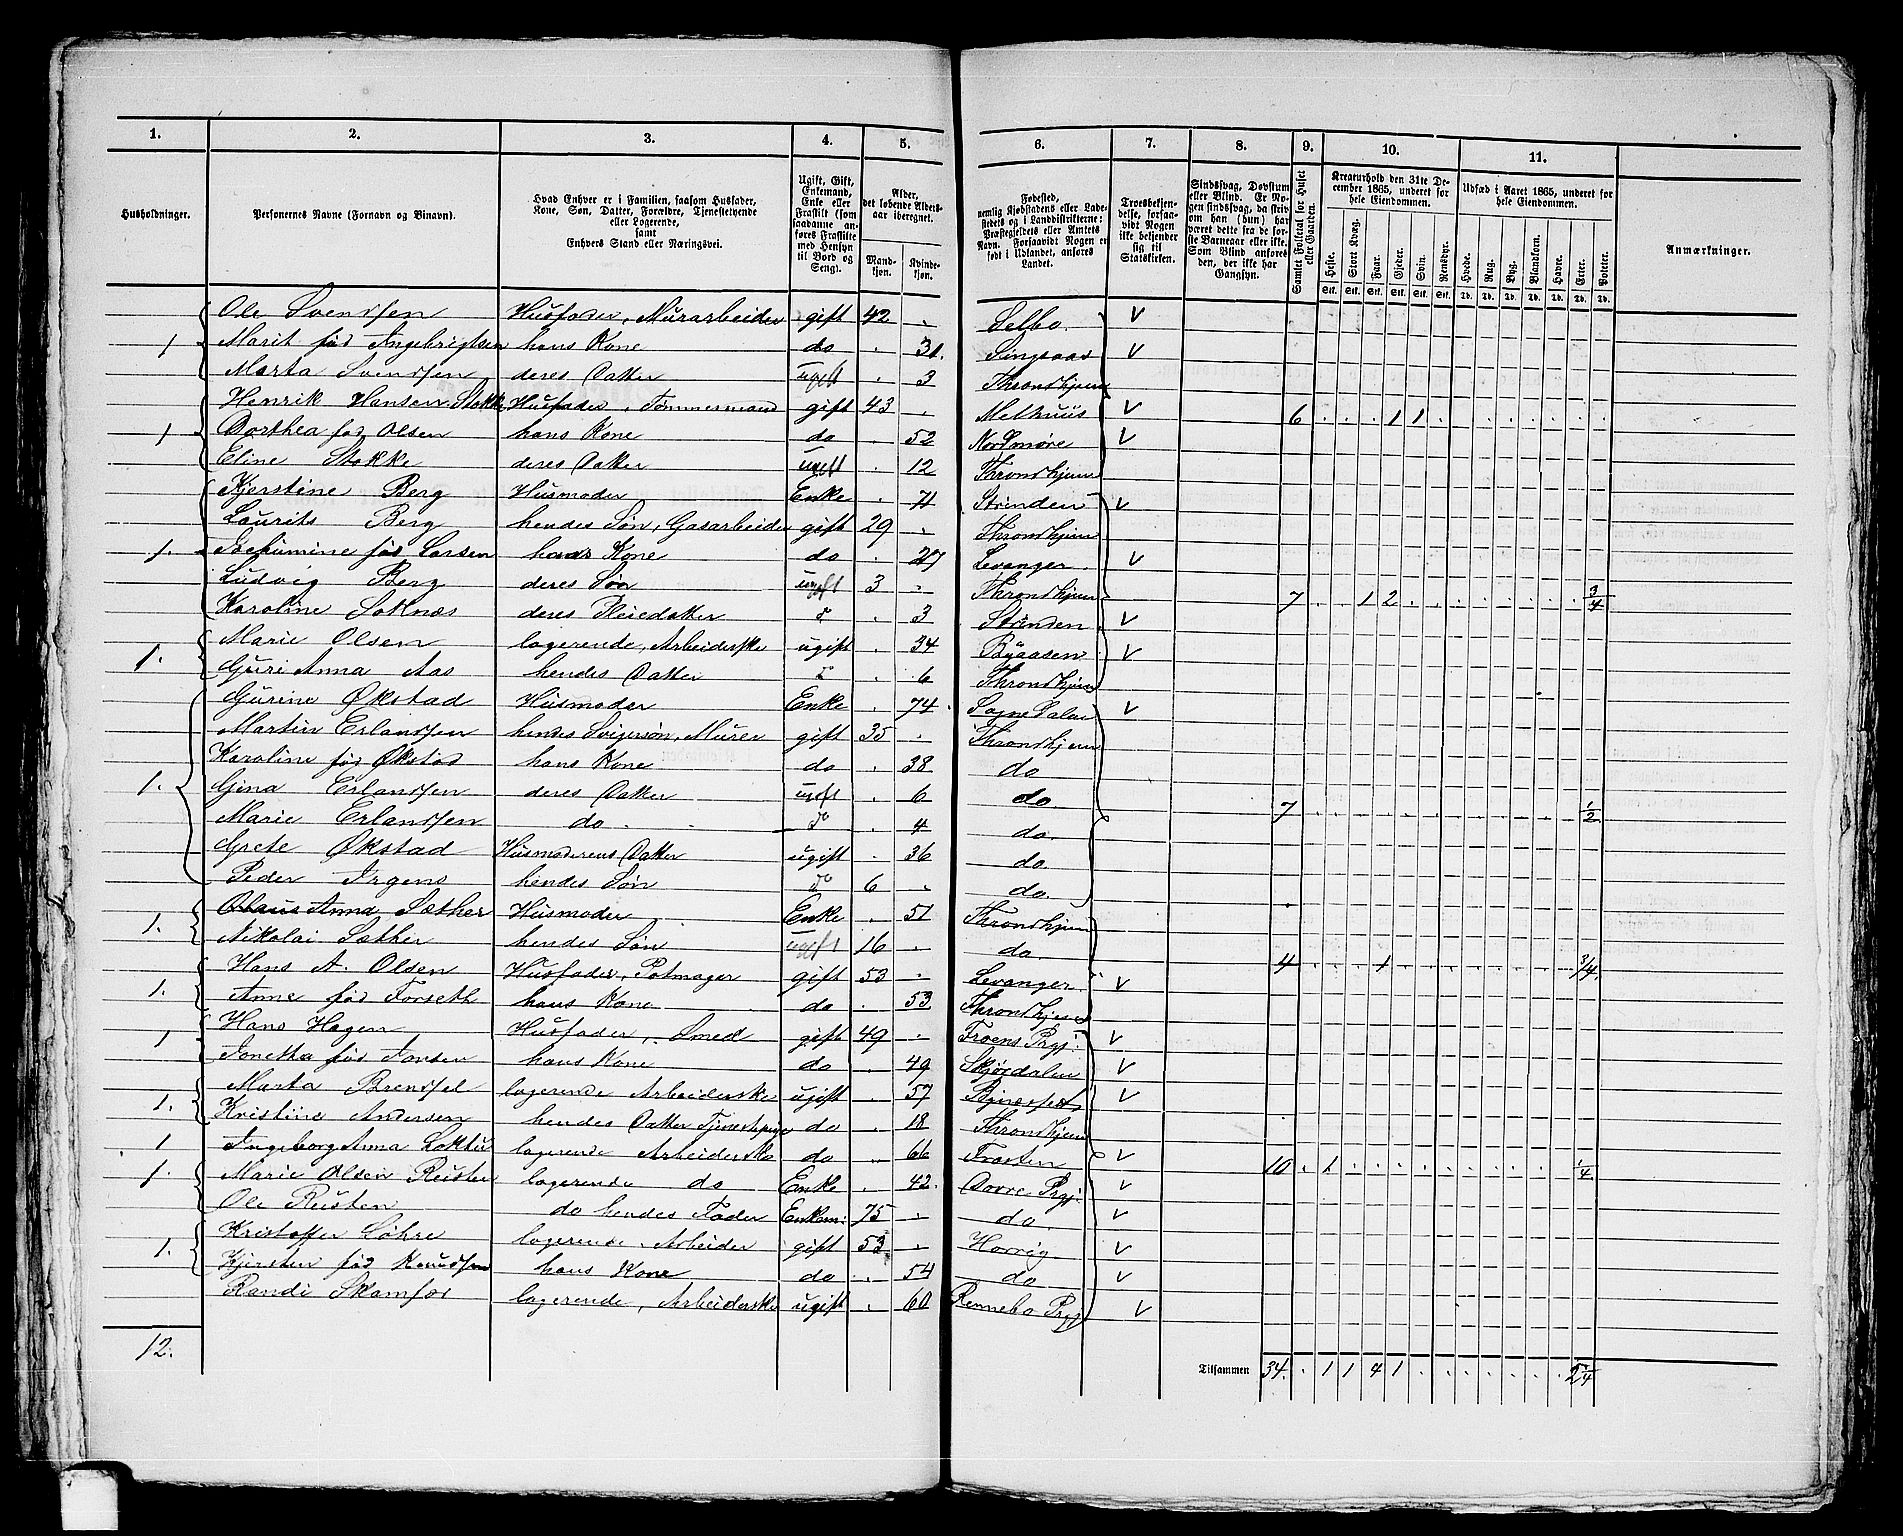 1. 2. 3. 4. 5. 6. 7. 8. 9. 10. 11.
Husholdninger.
Personernes Navne (Fornavn og Binavn).
Hvad Enhver er i Familien, saasom Husfader,
Kone, Søn, Datter, Forældre, Tjenestetyende
eller Logerende,
samt
Enhvers Stand eller Næringsvei.
Ugift, Gift,
Enkemand,
Enke eller
Fraskilt (som
saadanne an-
føres Fraskilte
med Hensyn
til Bord og
Seng).
Alder,
det løbende Alders-
aar iberegnet.
Mand-
kjøn.
Kvinde-
kjøn.
Fødested,
nemlig Kjøbstadens eller Lade-
stedets og i Landdistrikterne:
Præstegjeldets eller Amtets
Navn. Forsaavidt Nogen er
født i Udlandet, anføres
Landet.
Troesbekjen-
delse, forsaa-
vidt Nogen
ikke bekjender
sig til
Statskirken.
Sindssvag, Døvstum
eller Blind. Er No-
gen sindssvag, da skriv
om han (hun) har
været dette fra de før-
ste Barneaar eller ikke.
Som Blind anføres
den, der ikke har
Gangsyn.
Samlet Folketal for Huset
eller Gaarden.
Kreaturhold den 31te De-
cember 1865, underet for
hele Eiendommen.
Heste. Stort Kvæg. Faar. Gjeder. Svin. Rensdyr.
Stk. Stk. Stk. Stk. Stk. Stk.
Udsæd i Aaret 1865, underet for
hele Eiendommen.
Hvede. Rug. Byg. Blandkorn. Havre. Erter. Poteter.
Td. Td. Td. Td. Td. Td. Td.
Anmærkninger.
Ole Svendsen Husfader, Murarbeider gift 42 . Selbo. V
1 Marit fød Ingebrigtsen hans Kone do . 31. Singsaas V
Marta Svendsen deres Datter ugift . 3 Throndhjem
Henrik Hansen Stokke Husfader, Tømmermand gift 43 . Melhuus V 6 1 1
1 Dorthea fød Olsen hans Kone do . 52 Nordmøre V
Eline Stokke deres Datter ugift . 12 Throndhjem
Kjerstine Berg Husmoder Enke . 71 Strinden V
Laurits Berg hendes Søn, Gasarbeider gift 29 . Throndhjem
1. Jochumine fød Larsen hans Kone do . 27 Levanger V
Ludvig Berg deres Søn ugift 3 . Throndhjem 7 1 2 3/4
Karoline Soknæs deres Pleiedatter do . 3 Strinden V
Marie Olsen logerende, Arbeiderske ugift . 34 Byaasen V
1. Guri Anna Aas hendes Datter do . 6 Throndhjem
Gurine Økstad Husmoder Enke . 74. Sognedalen V
Martin Erlandsen hendes Svigersøn, Murer gift 35 . Throndhjem
Karoline fød Økstad hans Kone do . 38 do
1. Gina Erlandsen deres Datter ugift . 6 do 7 1/2
Marie Erlandsen do. do . 4 do
Grete Økstad Husmoderens Datter ugift . 36 do
Peder Irgens hendes Søn do 6 . do
Anna Sæther Husmoder Enke . 51 Throndhjem
1. Nikolai Sæther hendes Søn ugift 16 . do
Hans A. Olsen Husfader, Potmager gift 53 . Levanger V 4 1 3/4
1. Anne fød Forseth hans Kone do . 53. Throndhjem
Hans Hagen Husfader, Smed gift 49 . Froens Prgj. V
1 Jonetha fød Jonsen hans Kone do . 49 Skjørdalen V
Marta Brendsel logerende Arbeiderske ugift . 57 V
1. Kristine Andersen hendes Datter Tjenestepige do . 18 Throndhjem
1 Ingeborg Anna Loktu logerende Arbeiderske do . 66 Frosten V 10 1 1/4
1. Marie Olsen Reusten logerende do Enke . 42. Dovre Prgj. V
Ole Reusten do hendes Fader Enkem: 75 . do. V
Kristoffer Løhre logerende, Arbeider gift 53 . Horrig V
1. Kjersten fød Knudsen hans Kone do . 54 do V
Randi Skamfor logerende, Arbeiderske ugift . 60 Rennebo Prgj V
12.
Tilsammen 34. . 1 1 4 1 2 1/4